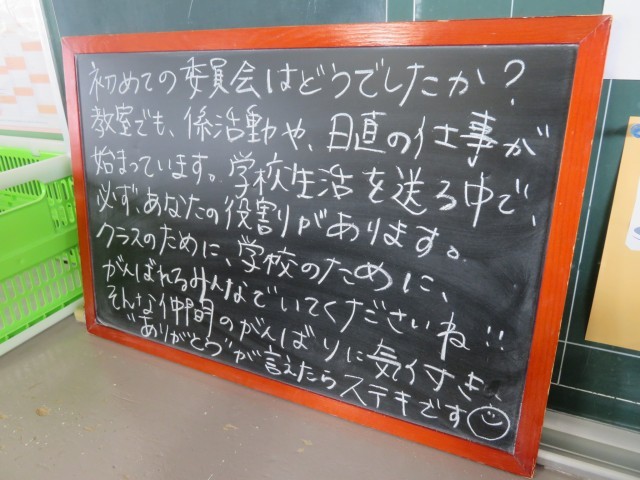 初めての委員会はどうでしたか？
教室でも、係活動や、日直の仕事が
始まっています。学校生活を送る中で、
必ず、あなたの役割りがあります。
クラスのために、学校のために、
がんばれるみんなでいてくださいね!!
そんな仲間のがんばりに気づき、
"ありがとう"が言えたらステキです